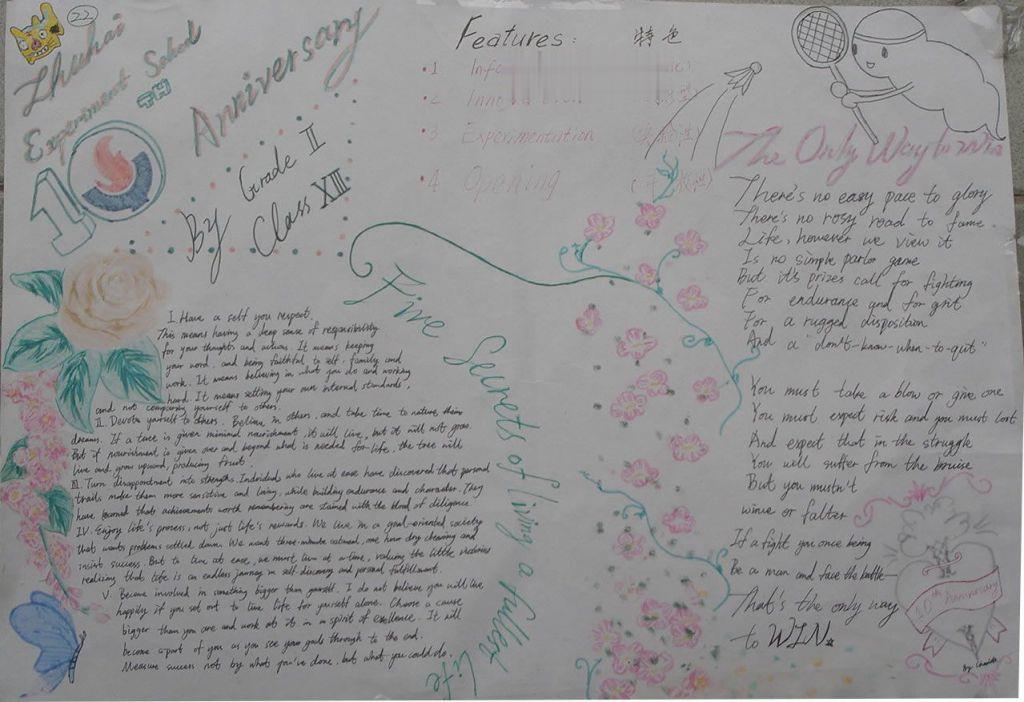 22
Zhuhai
Experiment School
10TH
Anniversary
By Grade II
Class XIII
Features: 特色
·1 Info
·2 Inn
·3 Experimentation
·4 Opening
The Only Way to Win
There's no easy pace to glory
There's no rosy road to fame.
Life, however we view it
Is no simple parlor game
But it's prizes call for fighting
For endurance and for grit
For a rugged disposition
And a "don't-know-when-to-quit"
You must take a blow or give one
You must expect risk and you must lost
And expect that in the struggle
You will suffer from the bruise
But you mustn't
wince or falter
If a fight you once being
Be a man and face the battle—
That's the only way
to WIN.
10th Anniversary
By
Five Secrets of living a fullent life
I. Have a self you respect.
This means having a deep sense of responsibility
for your thoughts and actions. It means keeping
your word, and being faithful to self, family and
work. It means believing in what you do and working
hard. It means setting your own internal standards,
and not comparing yourself to others.
II. Devote yourself to others. Believe in others, and take time to nature their
dreams. If a tree is given minimal nourishment, it will live, but it will not grow.
But if nourishment is given over and beyond what is needed for life, the tree will
live and grow upward, producing fruit.
III. Turn disappointment into strengths. Individuals who live at ease have discovered that personal
trails make them more sensitive and loving, while building endurance and character. They
have learned that achievements worth remembering are stained with the blood of diligence.
IV. Enjoy life's process, not just life's rewards. We live in a goal-oriented society
that wants problems settled down. We want three-minute oatmeal, one hour dry cleaning and
instit success. But to live at ease, we must live at a time, valuing the little victories
realizing that life is an endless journey in self-discovery and personal fulfillment.
V. Become involved in something bigger than yourself. I do not believe you will live
happily if you set out to live life for yourself alone. Choose a cause
bigger than you are and work at it in a spirit of excellence. It will
become a part of you as you see your goals through to the end.
Measure success not by what you've done, but what you could do.